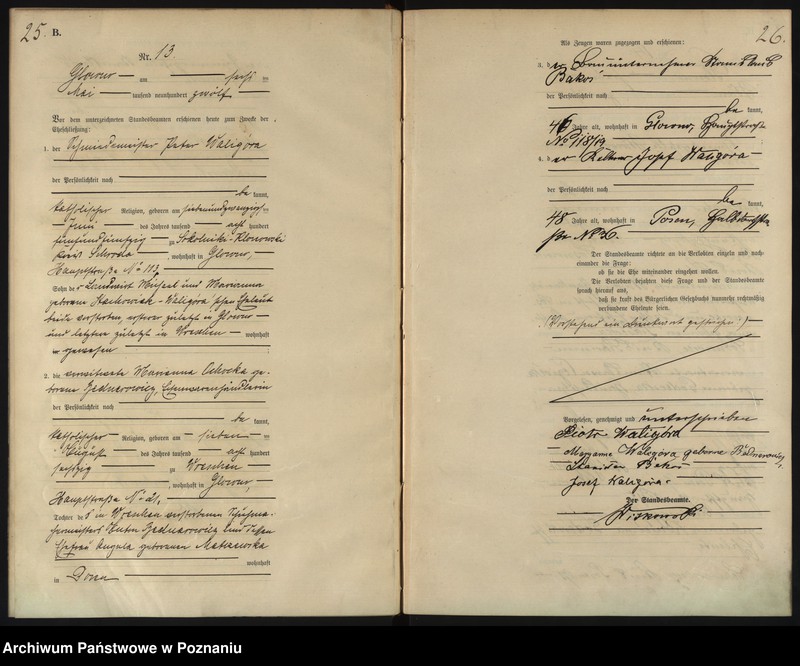 25. B.
Nr. 13
Glowno am sechsten
Mai tausend neunhundert zwölf
Vor dem unterzeichneten Standesbeamten erschienen heute zum Zwecke der
Eheschließung:
1. der Schmiedemeister Peter Waligóra
der Persönlichkeit nach
be kannt,
katholischer Religion, geboren am siebenundzwanzigsten
Juni des Jahres tausend acht hundert
fünfundfünfzig zu Sokolniki-Klonowski
Kreis Schroda, wohnhaft in Glowno,
Hauptstraße No 113
Sohn des Landwirt Michael und Marianna
geborene Waligóra'schen Eheleute
beide verstorben, ersterer zuletzt in Glowno
und letztere zuletzt in Wreschen wohnhaft
gewesen
2. die verwitwete Marianna Cichocka ge-
borene Bednarowicz,
der Persönlichkeit nach
be kannt,
katholischer Religion, geboren am sieben
August des Jahres tausend acht hundert
sechzig zu Wreschen
, wohnhaft in Glowno,
Hauptstraße No 21,
Tochter des in Wreschen verstorbenen Schuhma-
chermeisters Anton Bednarowicz und dessen
Ehefrau Angela geborenen
wohnhaft
in
26.
Als Zeugen waren zugezogen und erschienen:
3. der Bauunternehmer Stanislaus
Bakoś
der Persönlichkeit nach
be kannt,
46 Jahre alt, wohnhaft in Glowno, Hauptstraße
No 118/19
4. der Kellner Josef Waligóra
der Persönlichkeit nach
be kannt,
48 Jahre alt, wohnhaft in Posen, Halbdorfstra-
ße No 36.
Der Standesbeamte richtete an die Verlobten einzeln und nach-
einander die Frage:
ob sie die Ehe miteinander eingehen wollen.
Die Verlobten bejahten diese Frage und der Standesbeamte
sprach hierauf aus,
daß sie kraft des Bürgerlichen Gesetzbuchs nunmehr rechtmäßig
verbundene Eheleute seien.
(Vorstehend ein Druckwort gestrichen!)
Vorgelesen, genehmigt und unterschrieben
Piotr Waligóra
Maryanna Waligóra geborene Bednarowicz,
Bakoś
Josef Waligóra.
Der Standesbeamte.
Archiwum Państwowe w Poznaniu